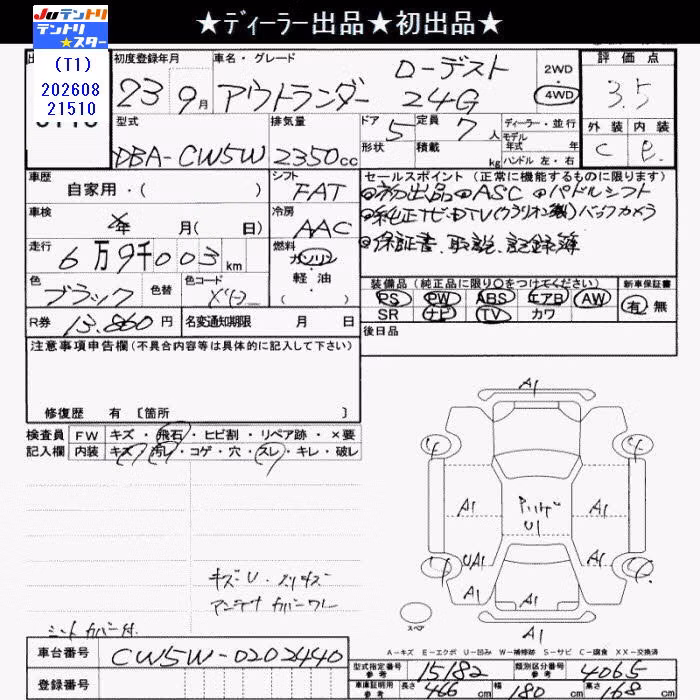 Juテントリ
テントリ
★スター
★ディーラー出品★初出品★
(T1)
202608
21510
初度登録年月
23年9月
車名・グレード
アウトランダー
ローデスト
24G
2WD
・
4WD
評価点
3.5
外装 内装
C
型式
DBA-CW5W
排気量
2350cc
ドア
5
形状
定員
7人
積載
kg
ディーラー・並行
モデル
年式 年
ハンドル 左・右
車歴
自家用・( )
シフト
FAT
セールスポイント (正常に機能するものに限ります)
初出品 ASC パドルシフト
バックカメラ
保証書、取説、記録簿
車検
年 月( 日)
冷房
AAC
走行
6万9千003km
燃料
ガソリン
・
軽油
・
( )
色
ブラック
色替
色コード
X42
装備品(純正品に限り○をつけてください)
PS PW ABS エアB AW
SR ナビ TV カワ
新車保証書
有 無
R券 13,860円
名変通知期限 月 日
後日品
注意事項申告欄(不具合内容等は具体的に記入して下さい)
修復歴 有 [箇所 ]
検査員
記入欄
FW キズ・飛石・ヒビ割・リペア跡・×要
内装 キズ・汚レ・コゲ・穴・スレ・キレ・破レ
A1
A1
A1
U1
A1
A1
UA1
A1
A1
A1
A1
キズU・スリキズ
アンテナカバーワレ
シートカバー付
スペア
A-キズ E-エクボ U-凹み W-補修跡 S-サビ C-腐食 XX-交換済
車台番号
CW5W-0202440
登録番号
型式指定番号
参考
15182
類別区分番号
参考
4065
車庫証明用
参考
長さ 466cm
幅 180cm
高さ 168cm